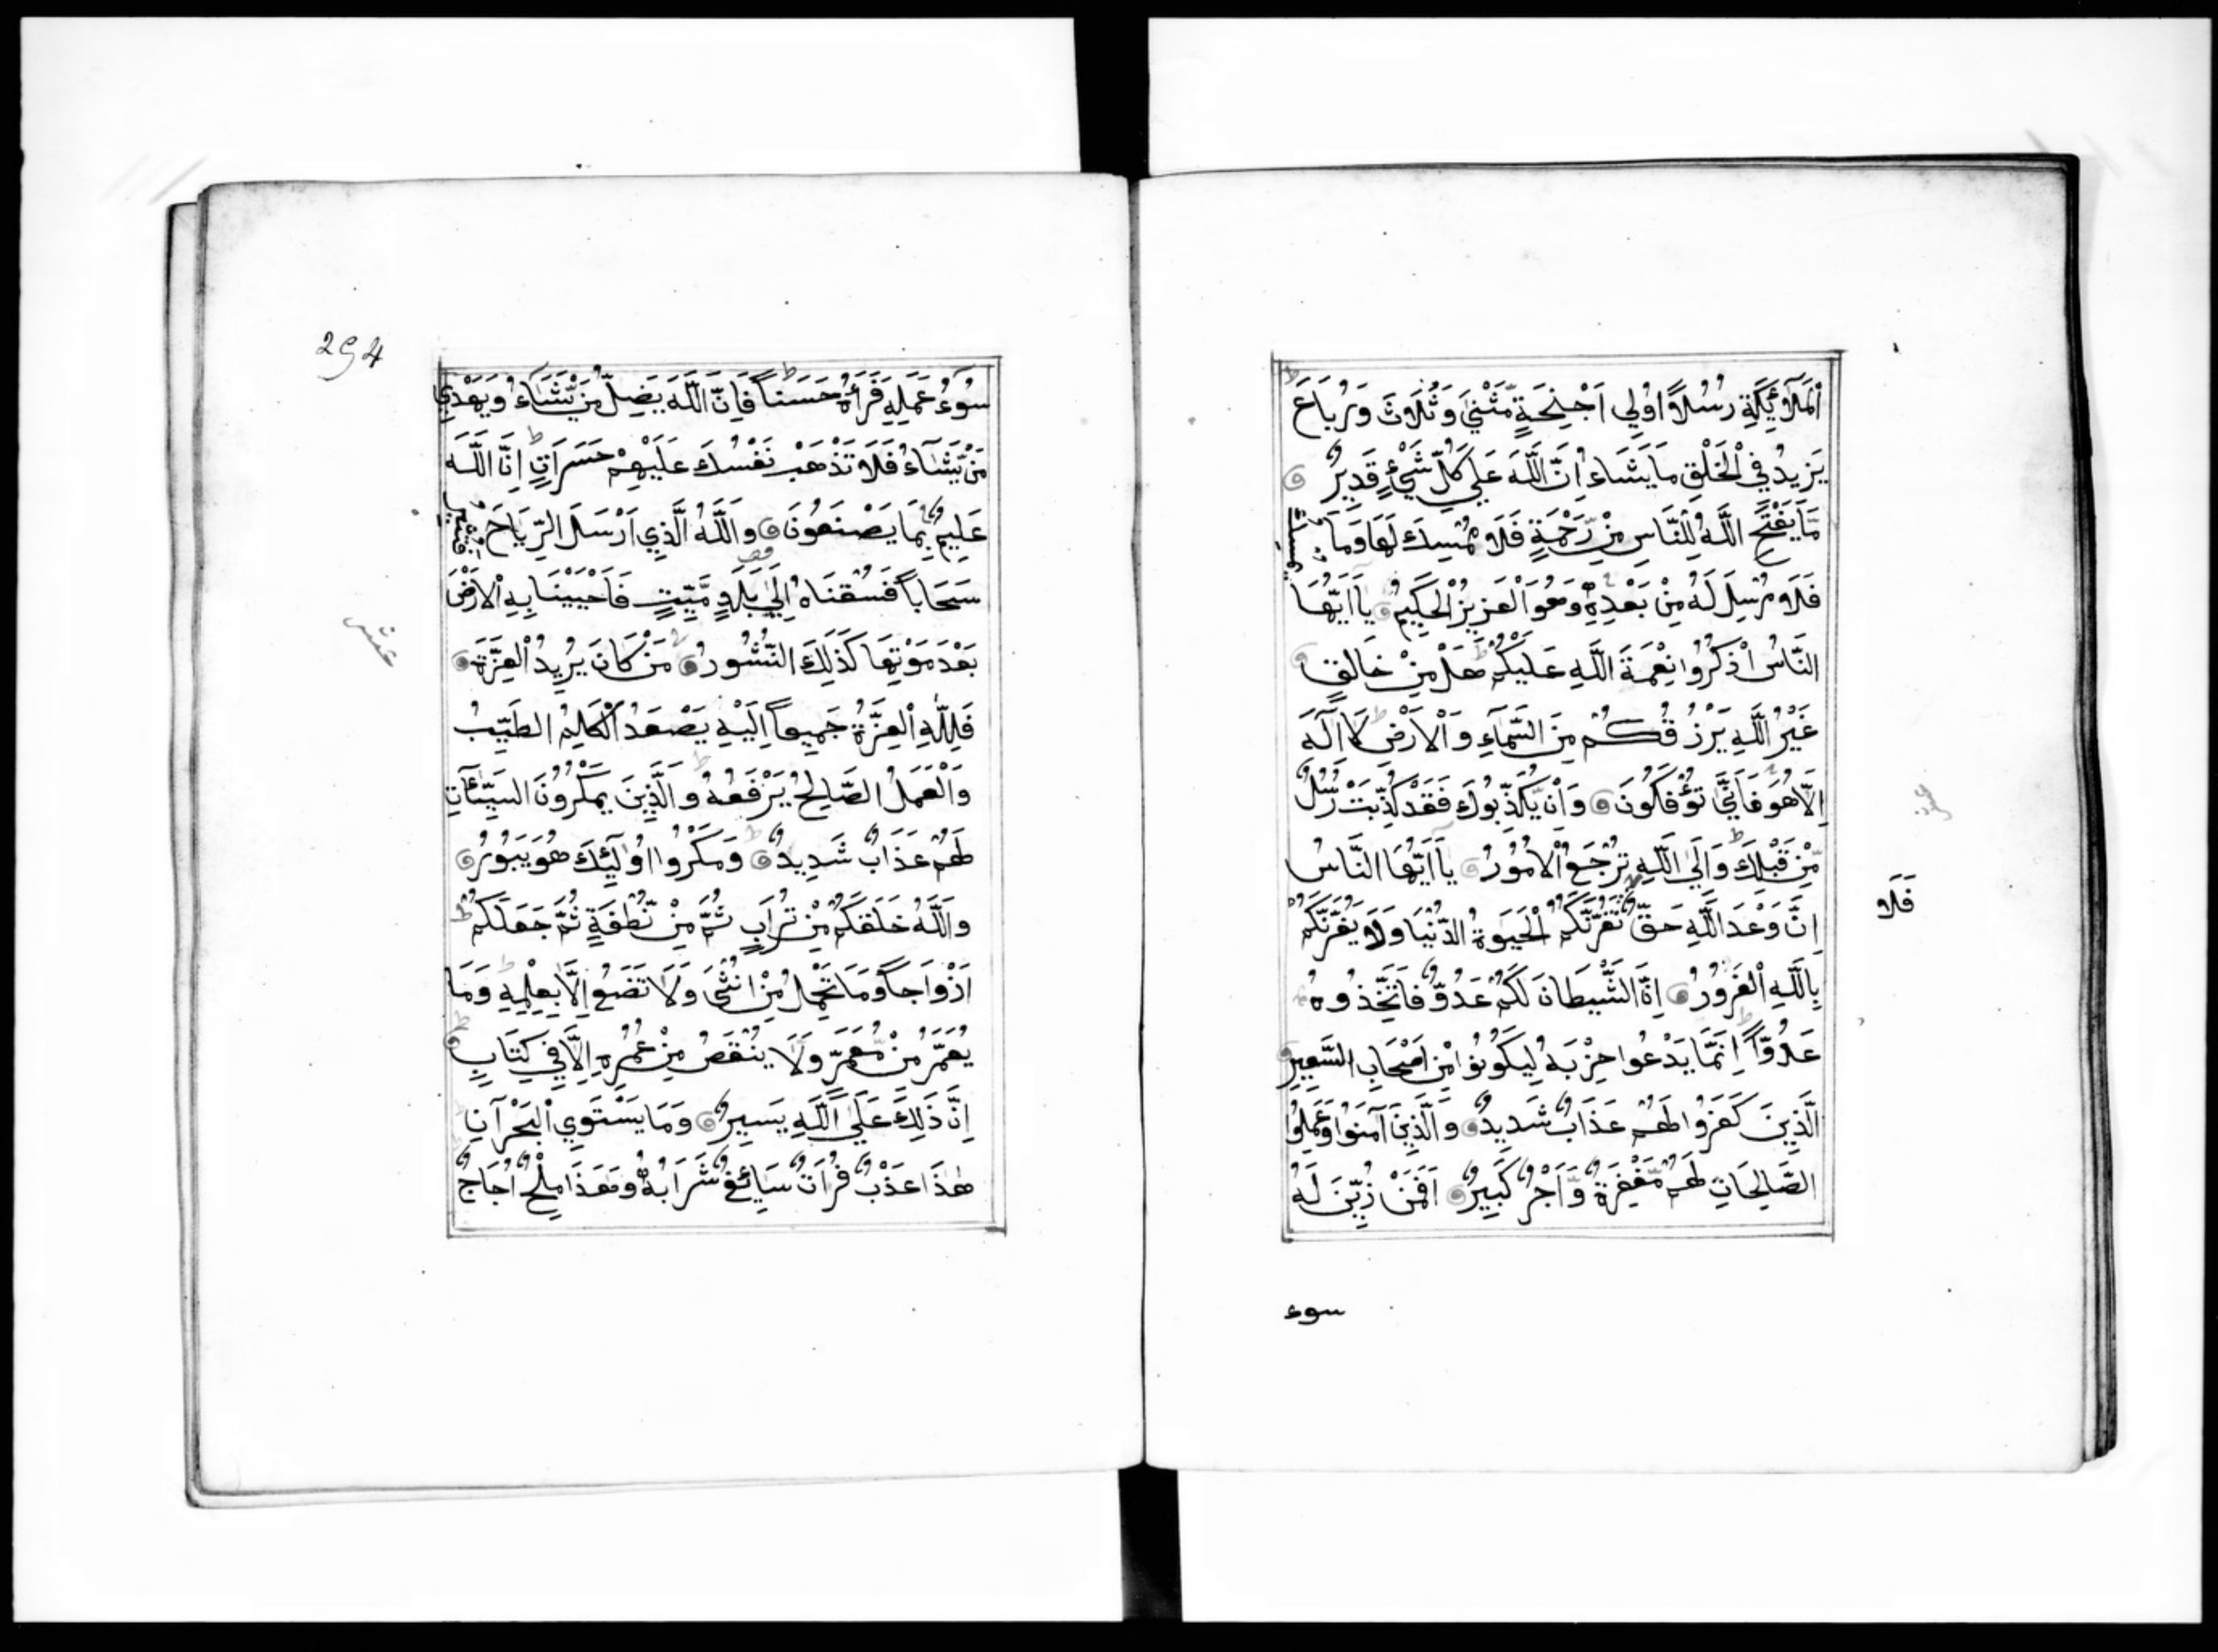 اَلْمَلَآئِكَةِ رُسُلاً اُولِى اَجْنِحَةٍ مَّثْنٰى وَثُلَاثَ وَرُبَاعَ ط
يَزِيدُ فِى الْخَلْقِ مَا يَشَاءُ اِنَّ اللَّهَ عَلٰى كُلِّ شَيْءٍ قَدِيرٌ
مَّا يَفْتَحِ اللَّهُ لِلنَّاسِ مِنْ رَّحْمَةٍ فَلَا مُمْسِكَ لَهَا وَمَا يُمْسِكْ
فَلَا مُرْسِلَ لَهُ مِنْ بَعْدِهِ وَهُوَ الْعَزِيزُ الْحَكِيمُ يَا اَيُّهَا
النَّاسُ اذْكُرُوا نِعْمَةَ اللَّهِ عَلَيْكُمْ ط هَلْ مِنْ خَالِقٍ
غَيْرُ اللَّهِ يَرْزُقُكُمْ مِنَ السَّمَآءِ وَالْاَرْضِ ط لَا اِلَهَ
اِلَّا هُوَ فَاَنّٰى تُؤْفَكُونَ وَاِنْ يُّكَذِّبُوكَ فَقَدْ كُذِّبَتْ رُسُلٌ
مِّنْ قَبْلِكَ ط وَاِلَى اللَّهِ تُرْجَعُ الْاُمُورُ يَا اَيُّهَا النَّاسُ
اِنَّ وَعْدَ اللَّهِ حَقٌّ تَغُرَّنَّكُمُ الْحَيٰوةُ الدُّنْيَا وَلَا يَغُرَّنَّكُمْ
فَلَا
بِاللَّهِ الْغَرُورُ اِنَّ الشَّيْطَانَ لَكُمْ عَدُوٌّ فَاتَّخِذُوهُ
عَدُوّاً ط اِنَّمَا يَدْعُوا حِزْبَهُ لِيَكُونُوا مِنْ اَصْحَابِ السَّعِيرِ
الَّذِينَ كَفَرُوا لَهُمْ عَذَابٌ شَدِيدٌ وَالَّذِينَ آمَنُوا وَعَمِلُوا
الصَّالِحَاتِ لَهُمْ مَّغْفِرَةٌ وَّاَجْرٌ كَبِيرٌ اَفَمَنْ زُيِّنَ لَهُ
سوء
294
سُوْءُ عَمَلِهِ فَرَاٰهُ حَسَناً ط فَاِنَّ اللَّهَ يُضِلُّ مَنْ يَّشَآءُ وَيَهْدِي
مَنْ يَّشَآءُ فَلَا تَذْهَبْ نَفْسُكَ عَلَيْهِمْ حَسَرَاتٍ ط اِنَّ اللَّهَ
عَلِيمٌ بِمَا يَصْنَعُونَ وَاللَّهُ الَّذِي اَرْسَلَ الرِّيَاحَ فَتُثِيرُ
سَحَاباً فَسُقْنَاهُ اِلٰى بَلَدٍ مَّيِّتٍ فَاَحْيَيْنَا بِهِ الْاَرْضَ
عشر
بَعْدَ مَوْتِهَا كَذَلِكَ النُّشُورُ مَنْ كَانَ يُرِيدُ الْعِزَّةَ
فَلِلَّهِ الْعِزَّةُ جَمِيعاً اِلَيْهِ يَصْعَدُ الْكَلِمُ الطَّيِّبُ
وَالْعَمَلُ الصَّالِحُ يَرْفَعُهُ ط وَالَّذِينَ يَمْكُرُونَ السَّيِّئَاتِ
لَهُمْ عَذَابٌ شَدِيدٌ ط وَمَكْرُ اُولٰئِكَ هُوَ يَبُورُ
وَاللَّهُ خَلَقَكُمْ مِنْ تُرَابٍ ثُمَّ مِنْ نُّطْفَةٍ ثُمَّ جَعَلَكُمْ ط
اَزْوَاجاً وَمَا تَحْمِلُ مِنْ اُنْثٰى وَلَا تَضَعُ اِلَّا بِعِلْمِهِ ط وَمَا
يُعَمَّرُ مِنْ مُّعَمَّرٍ وَلَا يُنْقَصُ مِنْ عُمُرِهِ اِلَّا فِي كِتَابٍ ط
اِنَّ ذَلِكَ عَلَى اللَّهِ يَسِيرٌ وَمَا يَسْتَوِي الْبَحْرَانِ
هٰذَا عَذْبٌ فُرَاتٌ سَآئِغٌ شَرَابُهُ وَهَذَا مِلْحٌ اُجَاجٌ